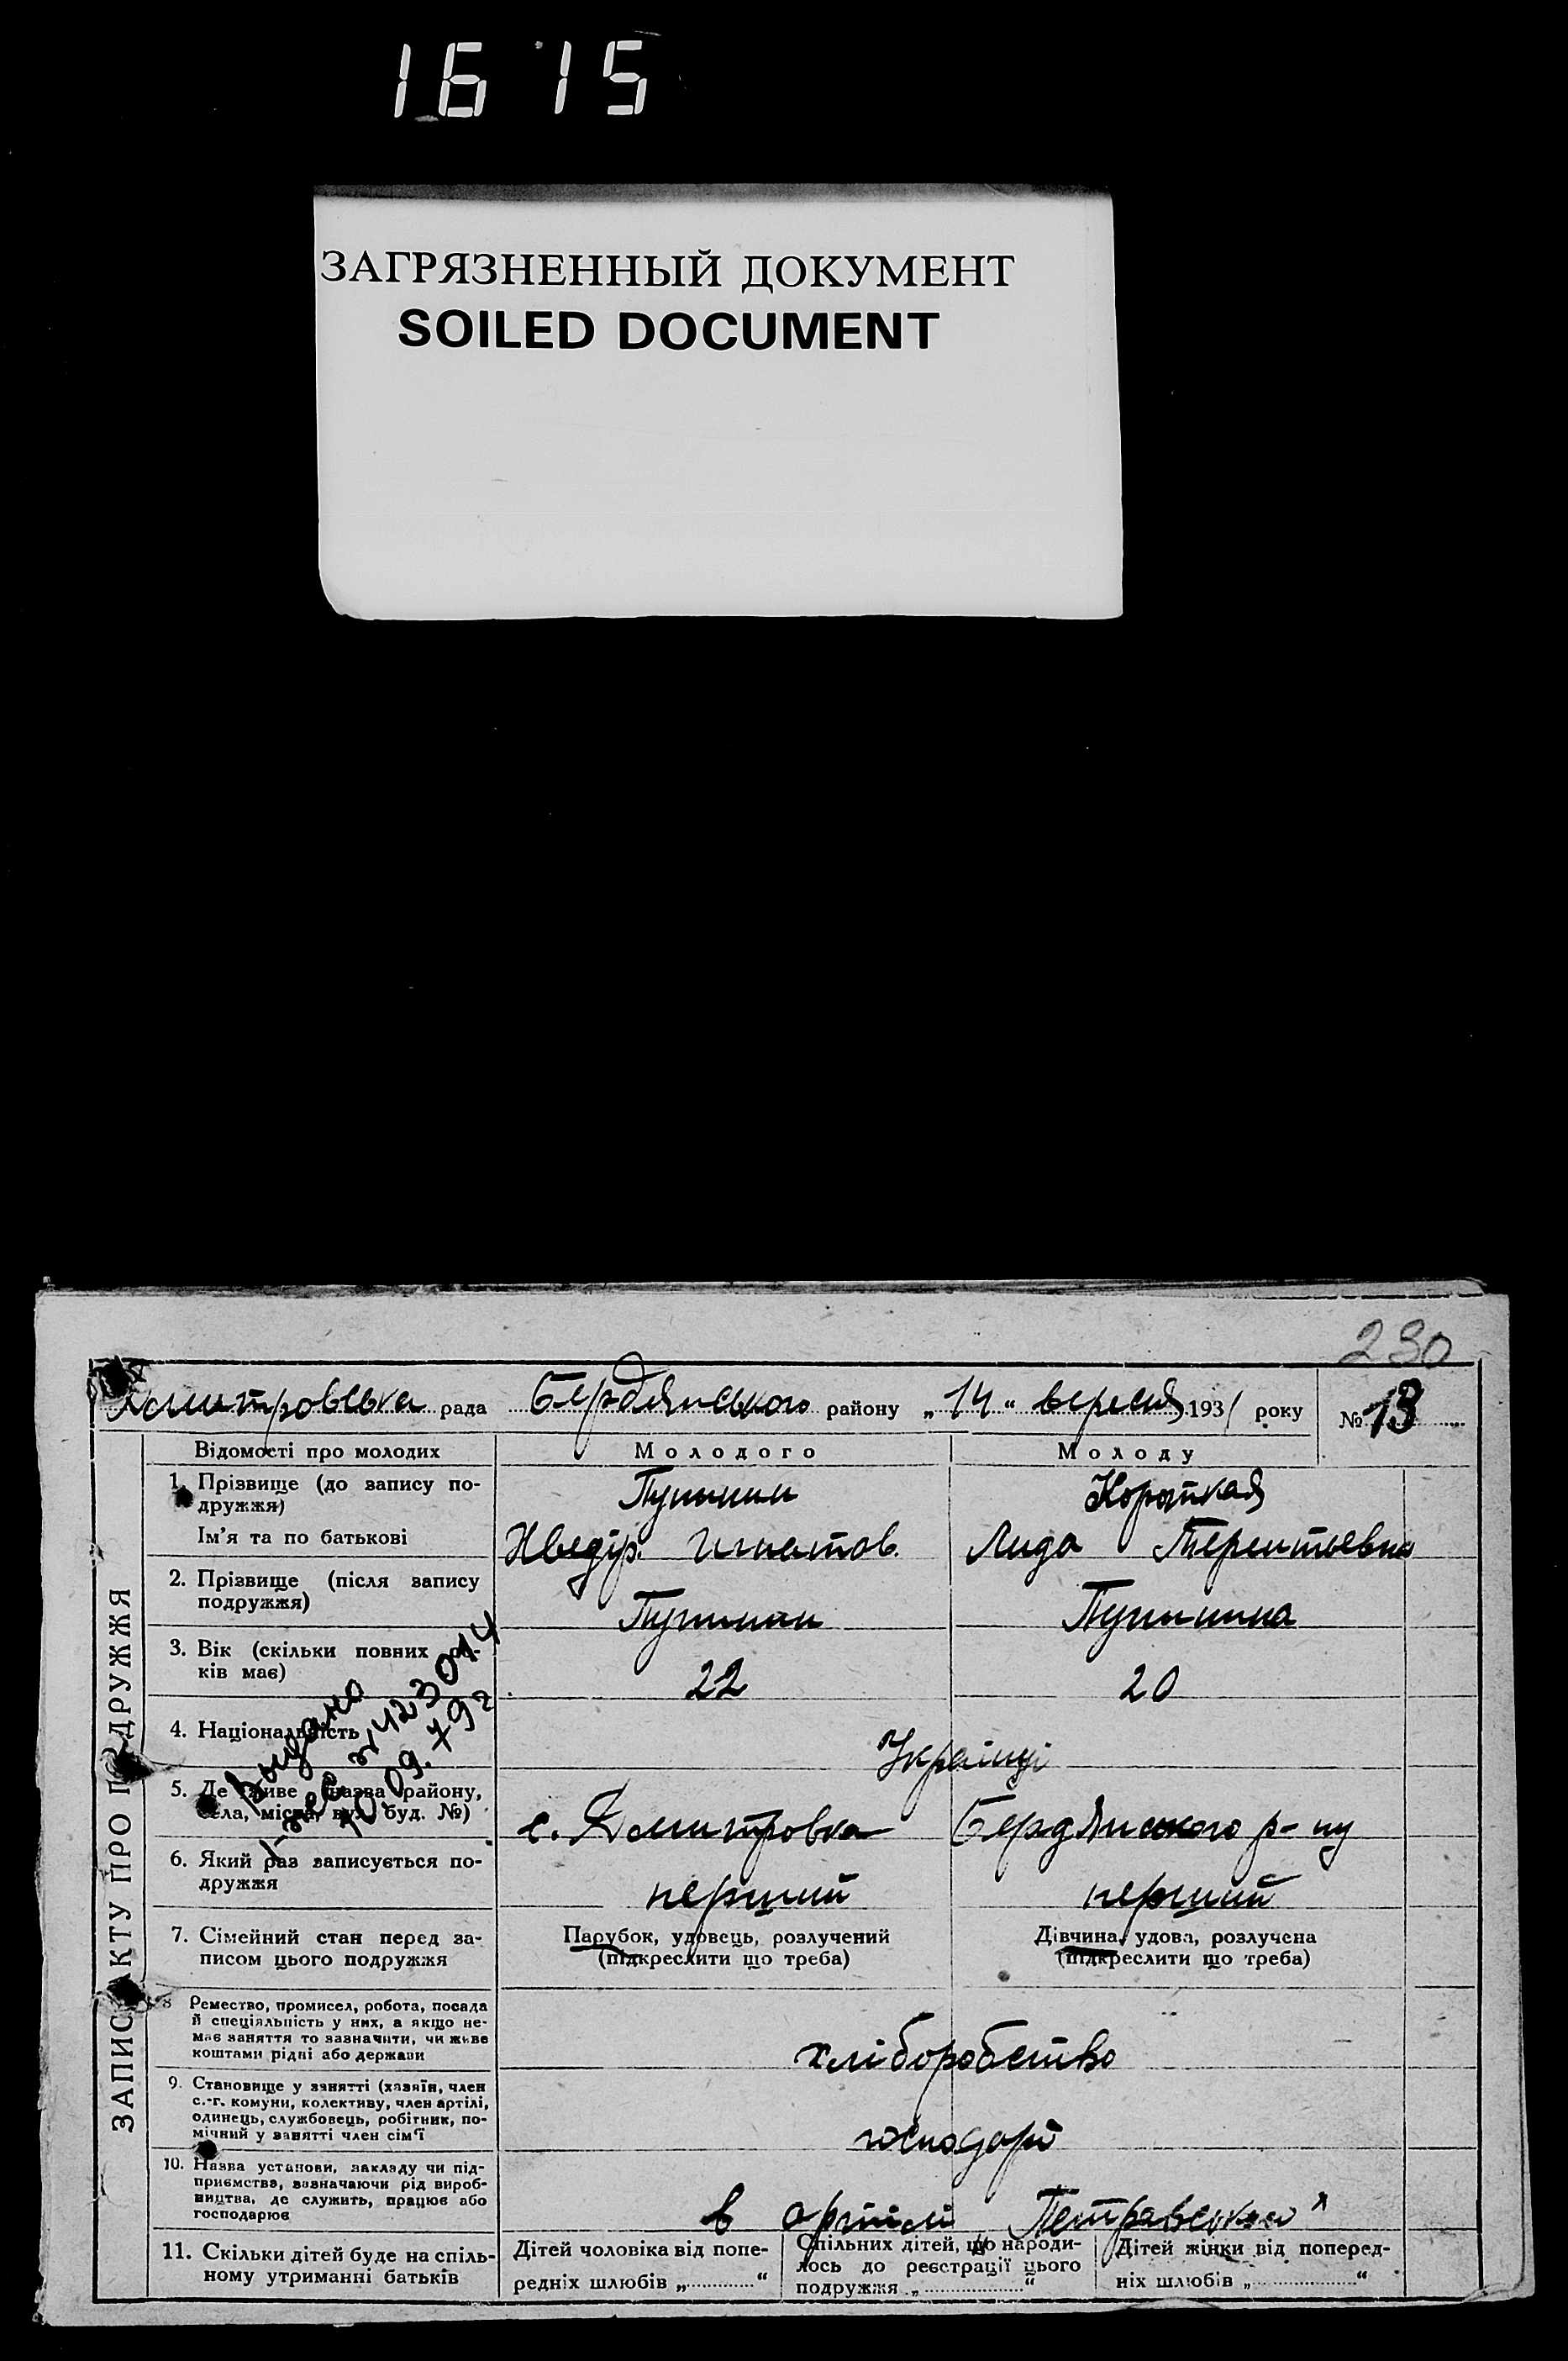 1615
ЗАГРЯЗНЕННЫЙ ДОКУМЕНТ
SOILED DOCUMENT
230
Дмитровська рада Бердянського району „14“ вересня 1931 року № 13
ЗАПИС АКТУ ПРО ПОДРУЖЖЯ
Відомості про молодих Молодого Молоду
1. Прізвище (до запису по-
дружжя)
Короткая
Ім'я та по батькові
Игнатов. Лида Терентьевна
2. Прізвище (після запису
подружжя)
3. Вік (скільки повних ро-
ків має)
22 20
4. Національність
Українці
5. Де живе (назва району,
села, міста, вул. буд. №)
с. Дмитровка Бердянского р-ну
6. Який раз записується по-
дружжя
перший перший
7. Сімейний стан перед за-
писом цього подружжя
Парубок, удовець, розлучений
(підкреслити що треба)
Дівчина, удова, розлучена
(підкреслити що треба)
8 Ремество, промисел, робота, посада
й спеціяльність у них, а якщо не-
має заняття то зазначити, чи живе
коштами рідні або держави
хліборобство
9. Становище у занятті (хазяїн, член
с.-г. комуни, колективу, член артілі,
одинець, службовець, робітник, по-
мічний у занятті член сім'ї
господарі
10. Назва установи, закладу чи під-
приємства, зазначаючи рід вироб-
ництва, де служить, працює або
господарює
в артілі
11. Скільки дітей буде на спіль-
ному утриманні батьків
Дітей чоловіка від попе-
редніх шлюбів „ “
Спільних дітей, що народи-
лось до реєстрації цього
подружжя „ “
Дітей жінки від поперед-
ніх шлюбів „ “
Выдано
423014